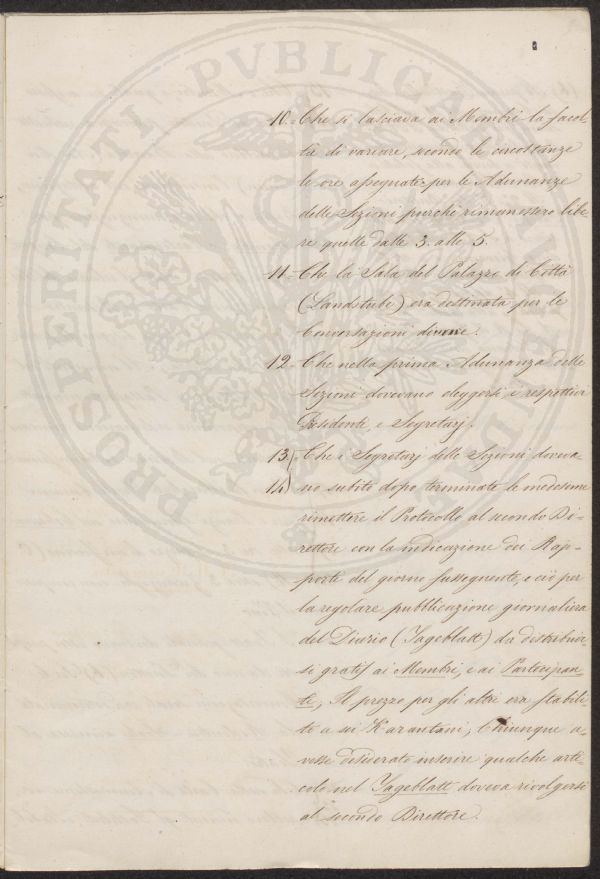 PROSPERITATI PVBLICAE AVGENDAE
10.= Che si lasciava ai Membri la facol-
tà di variare, secondo le circostanze
le ore assegnate per le Adunanze
delle Sezioni purché rimanessero libe
re quelle dalle 3. alle 5.
11.= Che la Sala del Palazzo di Città
(Landstube) era destinata per le
Conversazioni diurne.
12.= Che nella prima Adunanza delle
Sezioni dovevano eleggersi i respettivi
Presidente, e Segretarj.
13.) Che i Segretarj delle Sezioni doveva-
14) no subito dopo terminate le medesime
rimettere il Protocollo al secondo Di-
rettore con la indicazione dei Rap-
porti del giorno susseguente, e ciò per
la regolare pubblicazione giornaliera
del Diario (Tageblatt) da distribuir-
si gratis ai Membri, e ai Partecipan-
ti, Il prezzo per gli altri era stabili-
to a sei Karantani, Chiunque a-
vesse desiderato inserire qualche arti-
colo nel Tageblatt doveva rivolgersi
al secondo Direttore.